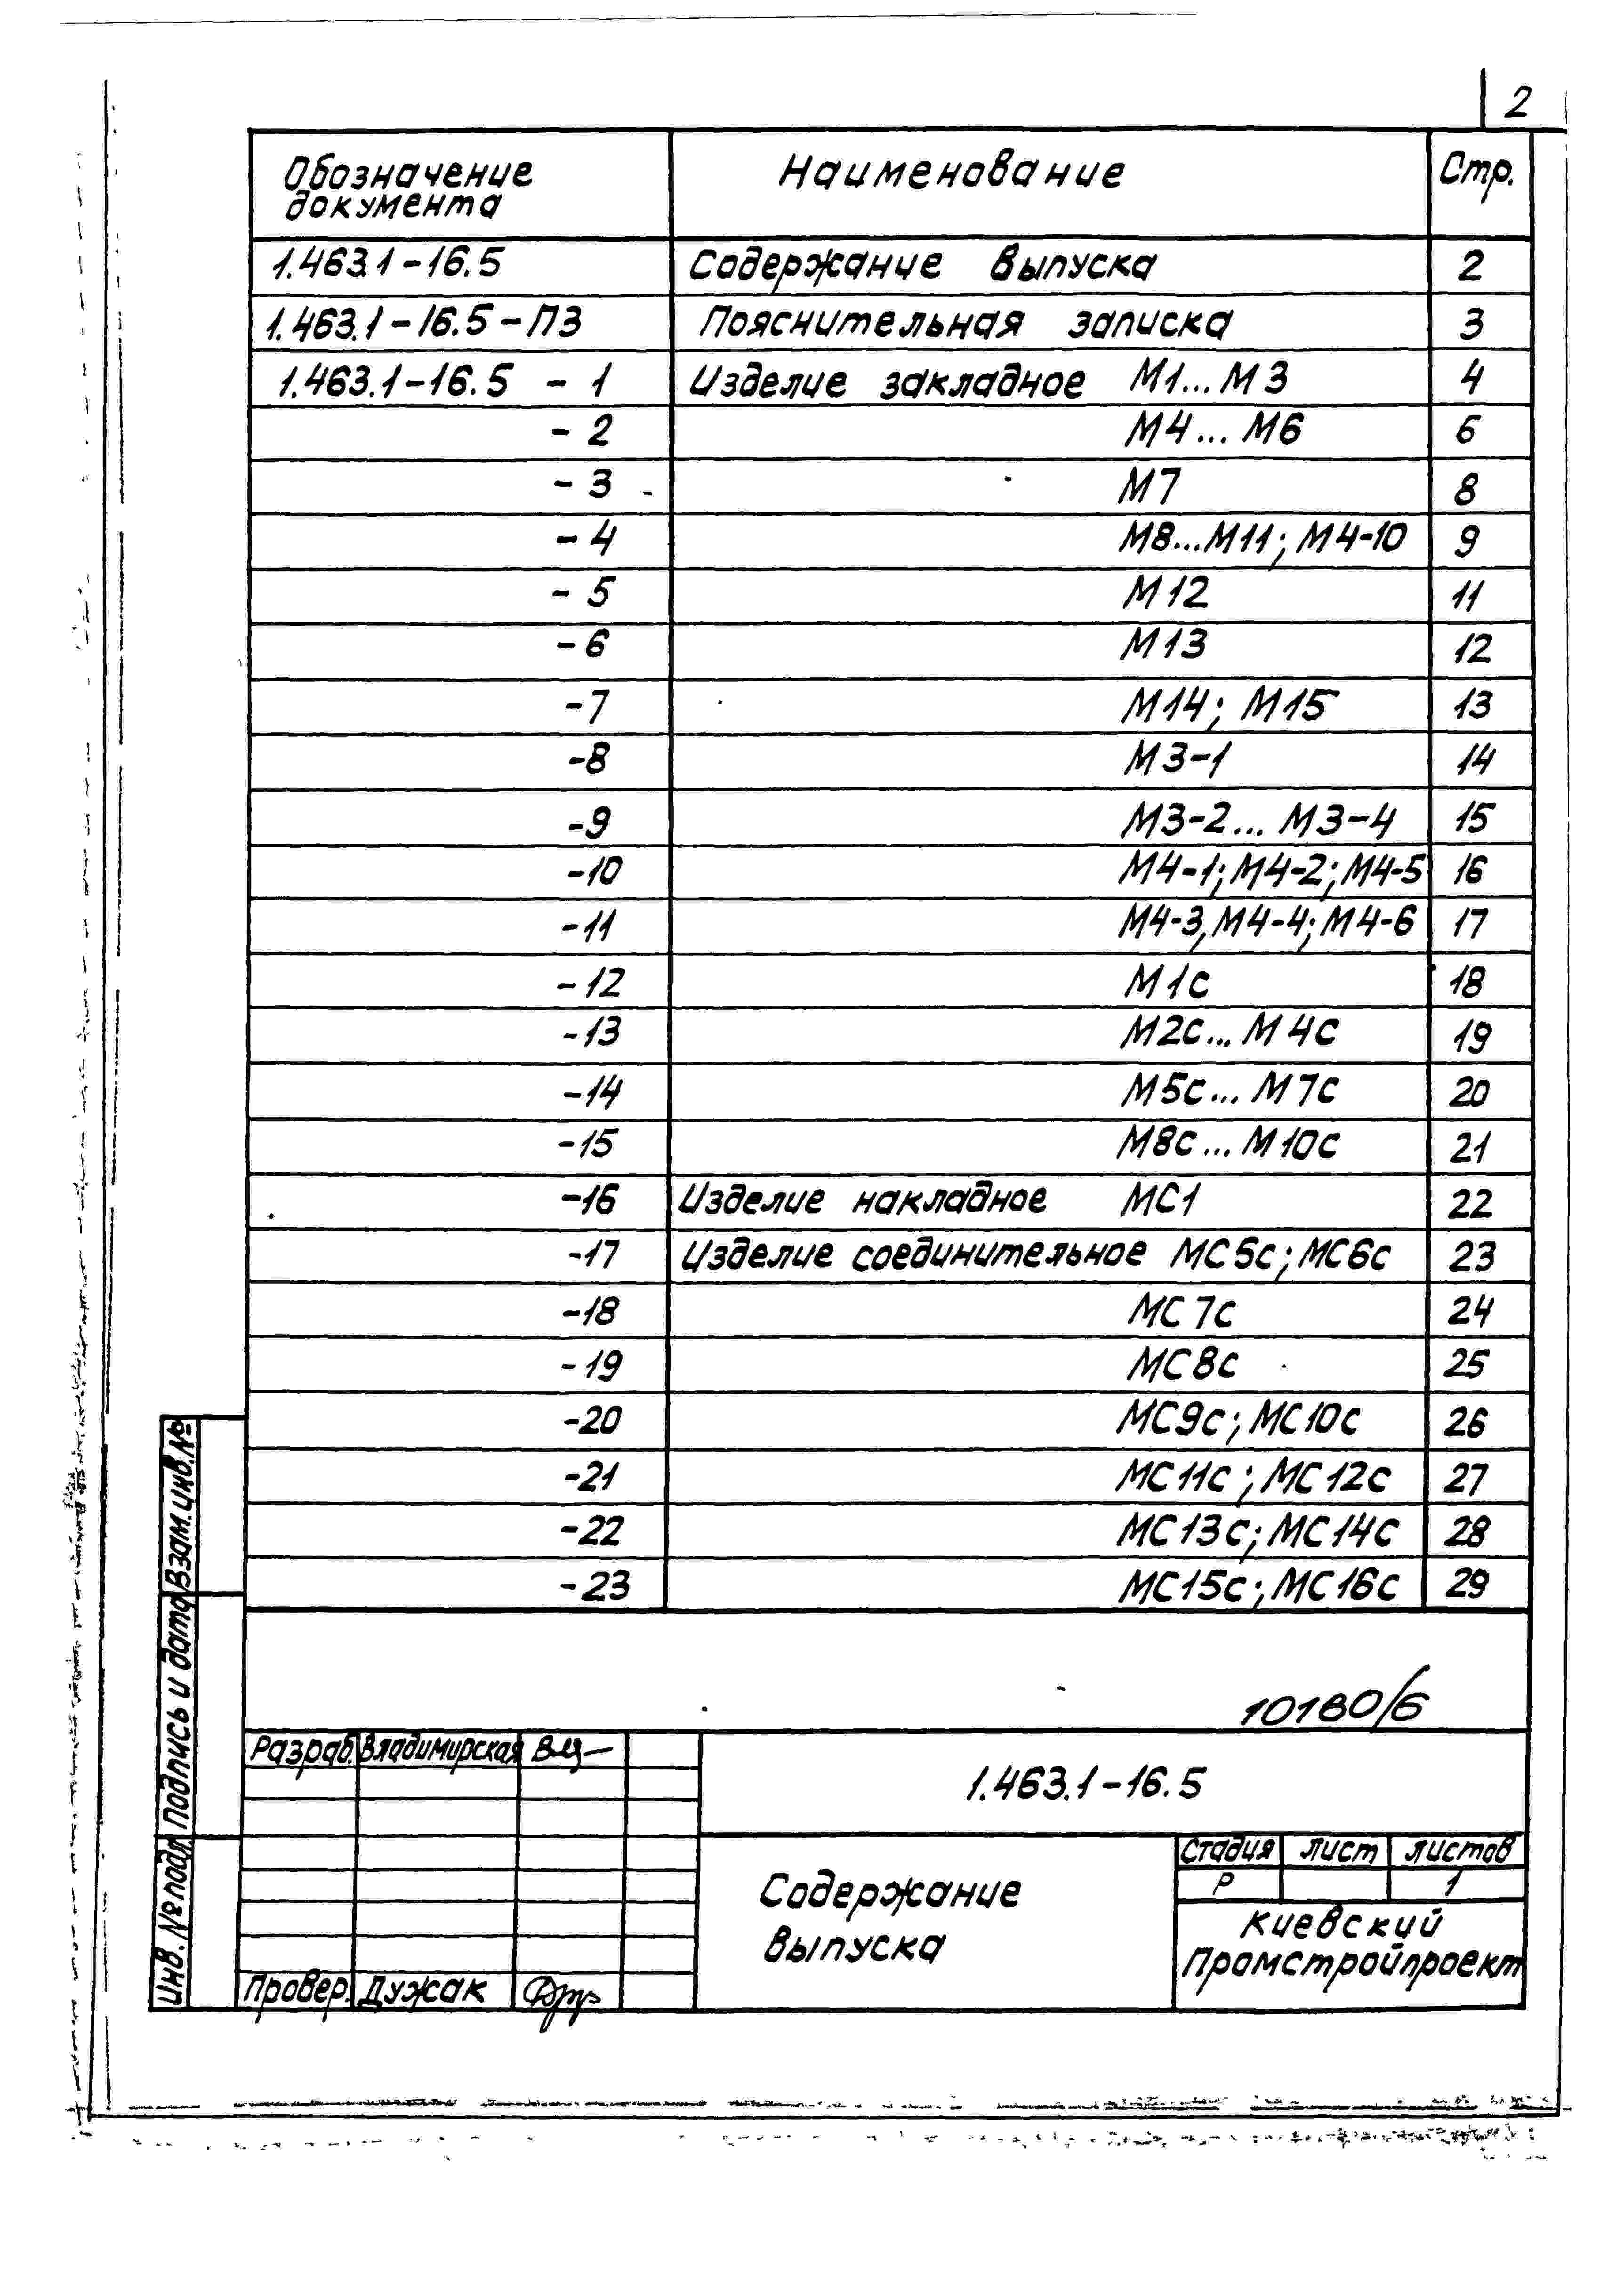 2
Обозначение документа Наименование Стр.
1.463.1-16.5 Содержание выпуска 2
1.463.1-16.5-ПЗ Пояснительная записка 3
1.463.1-16.5 - 1 Изделие закладное М1...М3 4
- 2 М4...М6 6
- 3 М7 8
- 4 М8...М11; М4-10 9
- 5 М12 11
- 6 М13 12
-7 М14; М15 13
-8 М3-1 14
-9 М3-2...М3-4 15
-10 М4-1; М4-2; М4-5 16
-11 М4-3, М4-4; М4-6 17
-12 М1с 18
-13 М2с...М4с 19
-14 М5с...М7с 20
-15 М8с...М10с 21
-16 Изделие накладное МС1 22
-17 Изделие соединительное МС5с; МС6с 23
-18 МС7с 24
-19 МС8с 25
-20 МС9с; МС10с 26
-21 МС11с; МС12с 27
-22 МС13с; МС14с 28
-23 МС15с; МС16с 29
10180/6
Разраб. Владимирская
1.463.1-16.5
Содержание
выпуска
Стадия Лист Листов
Р 1
Киевский
Промстройпроект
Провер. Дужак
Взам. инв. №
Подпись и дата
Инв. № подл.